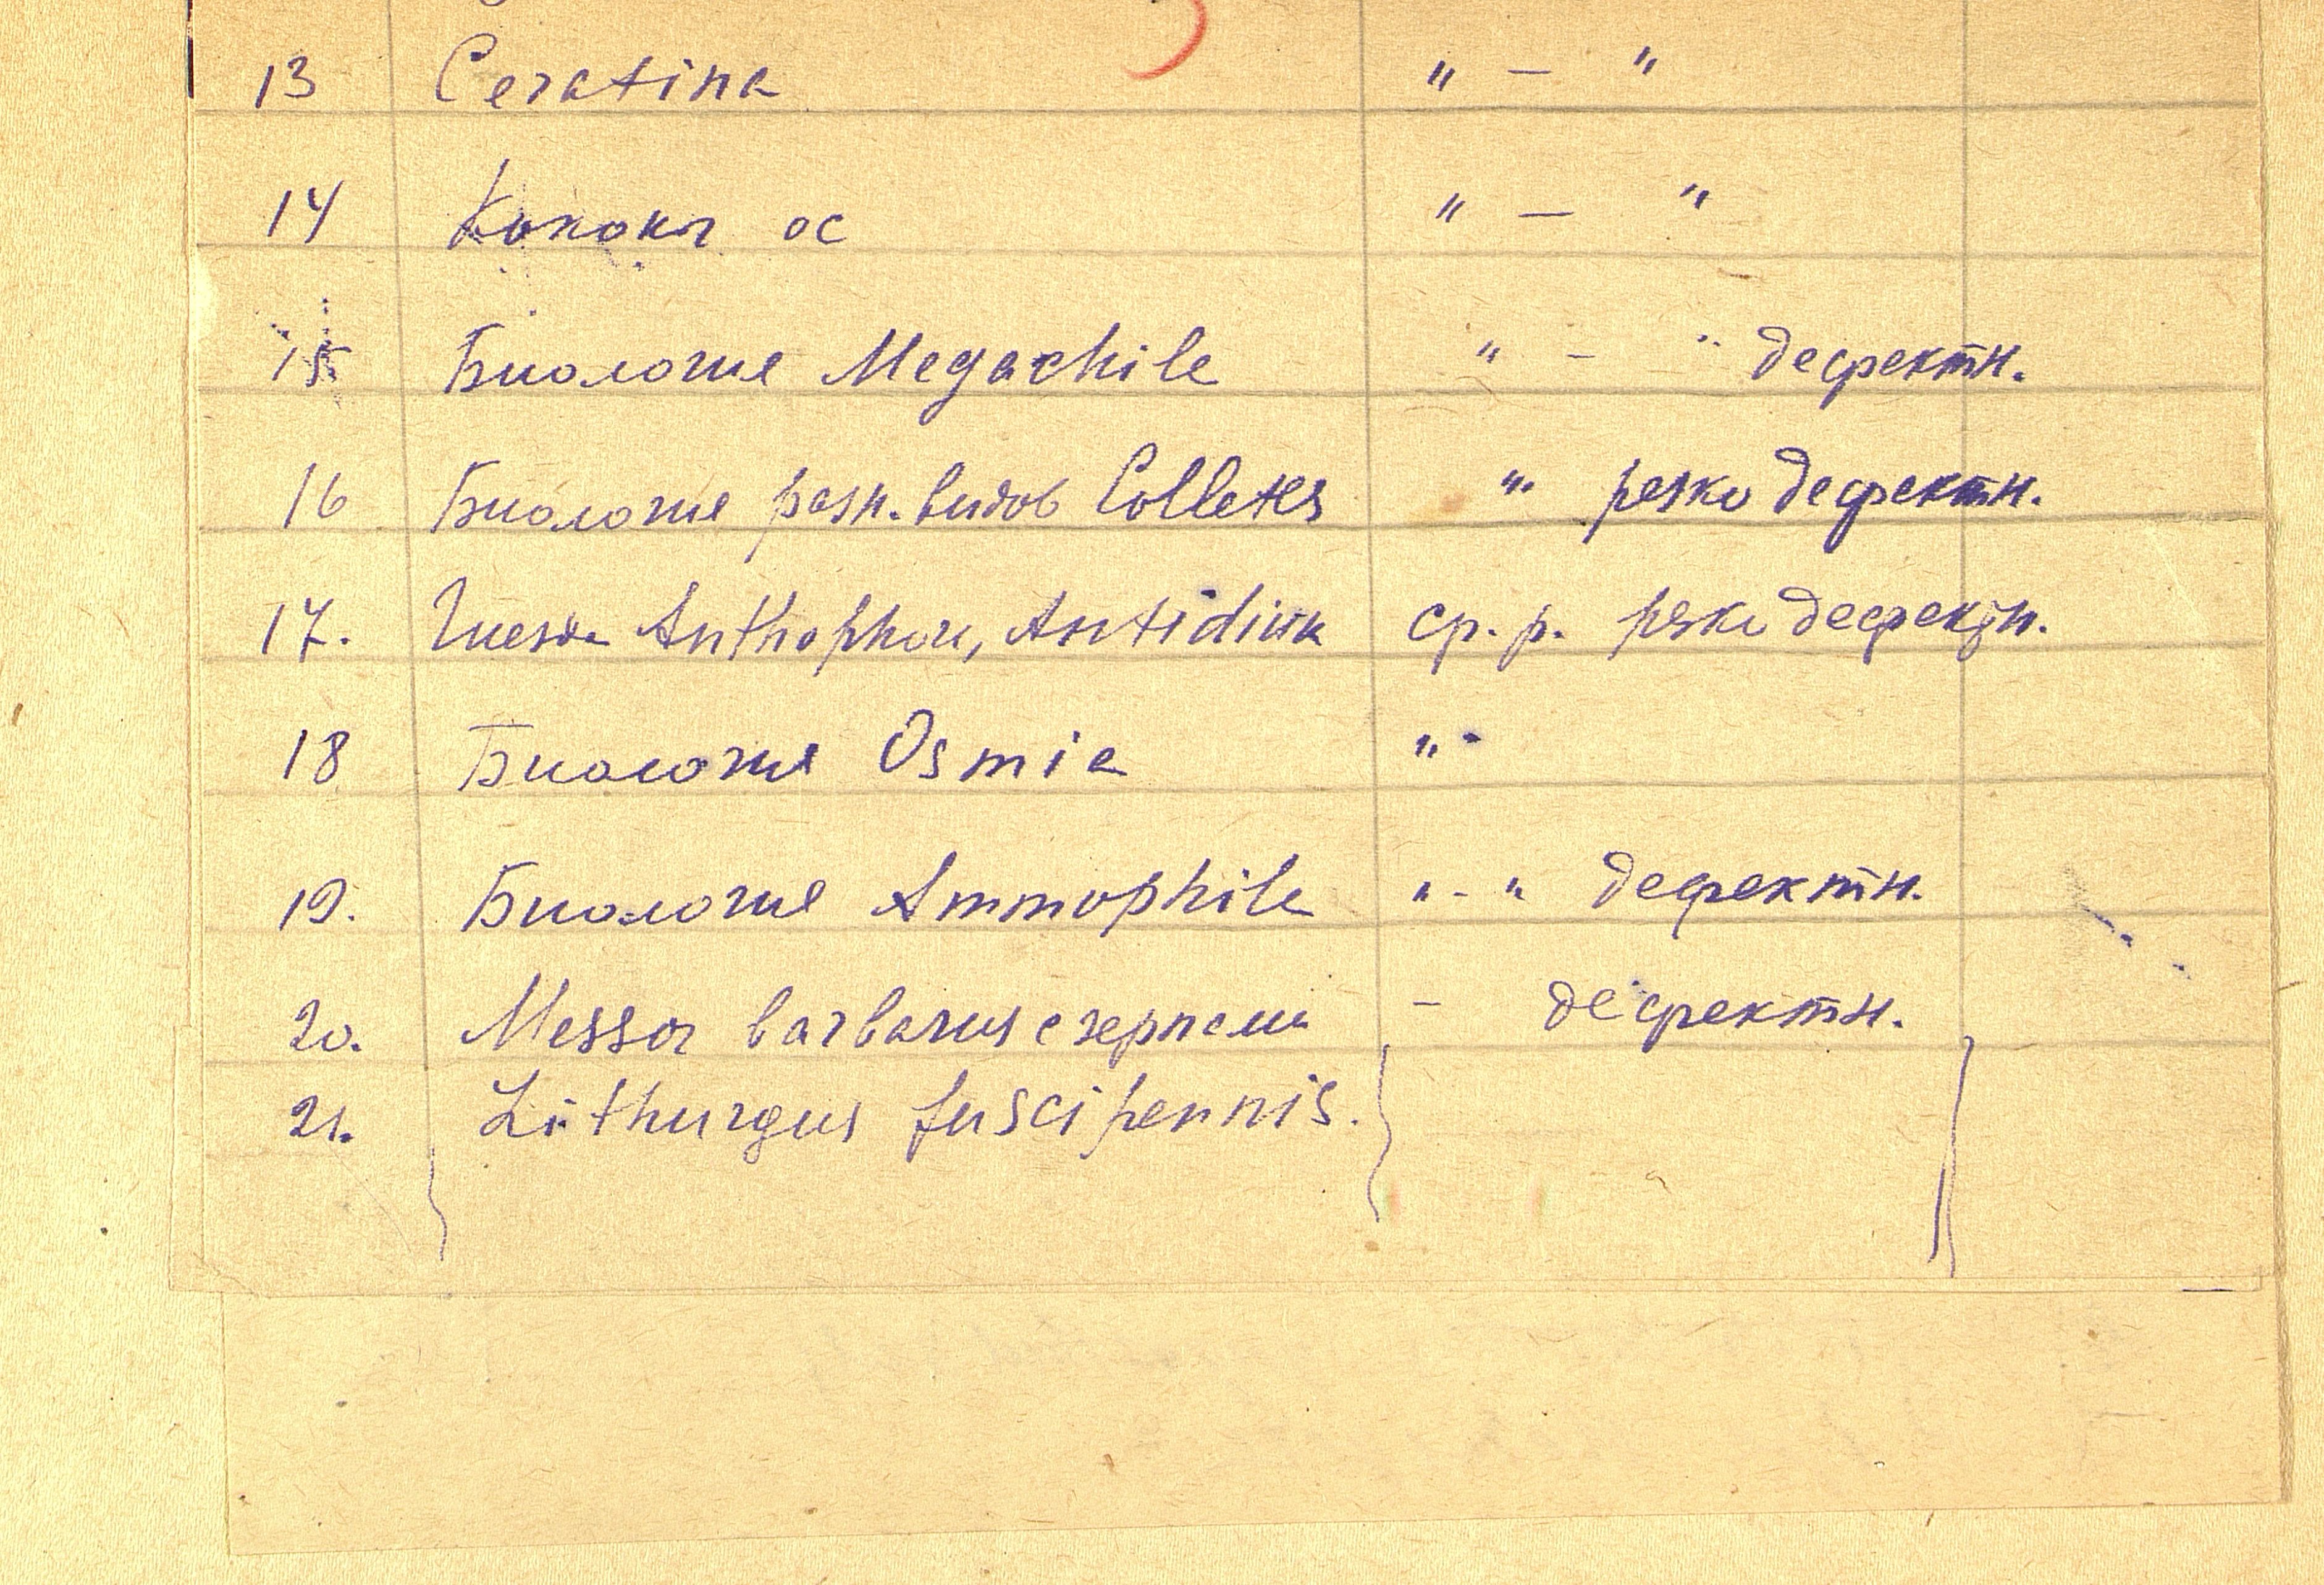 13 Ceratina " — "
14 Коконы ос " — "
15 Биология Megachile " - " дефектн.
16 Биология разн. видов Colletes " резко дефектн.
17. Гнезда Anthophora, Antidium ср. р. резко дефектн.
18 Биология Osmia "
19. Биология Ammophila " - " дефектн.
20. Messor barbarus с зернами - дефектн.
21. Lithurgus fuscipennis.